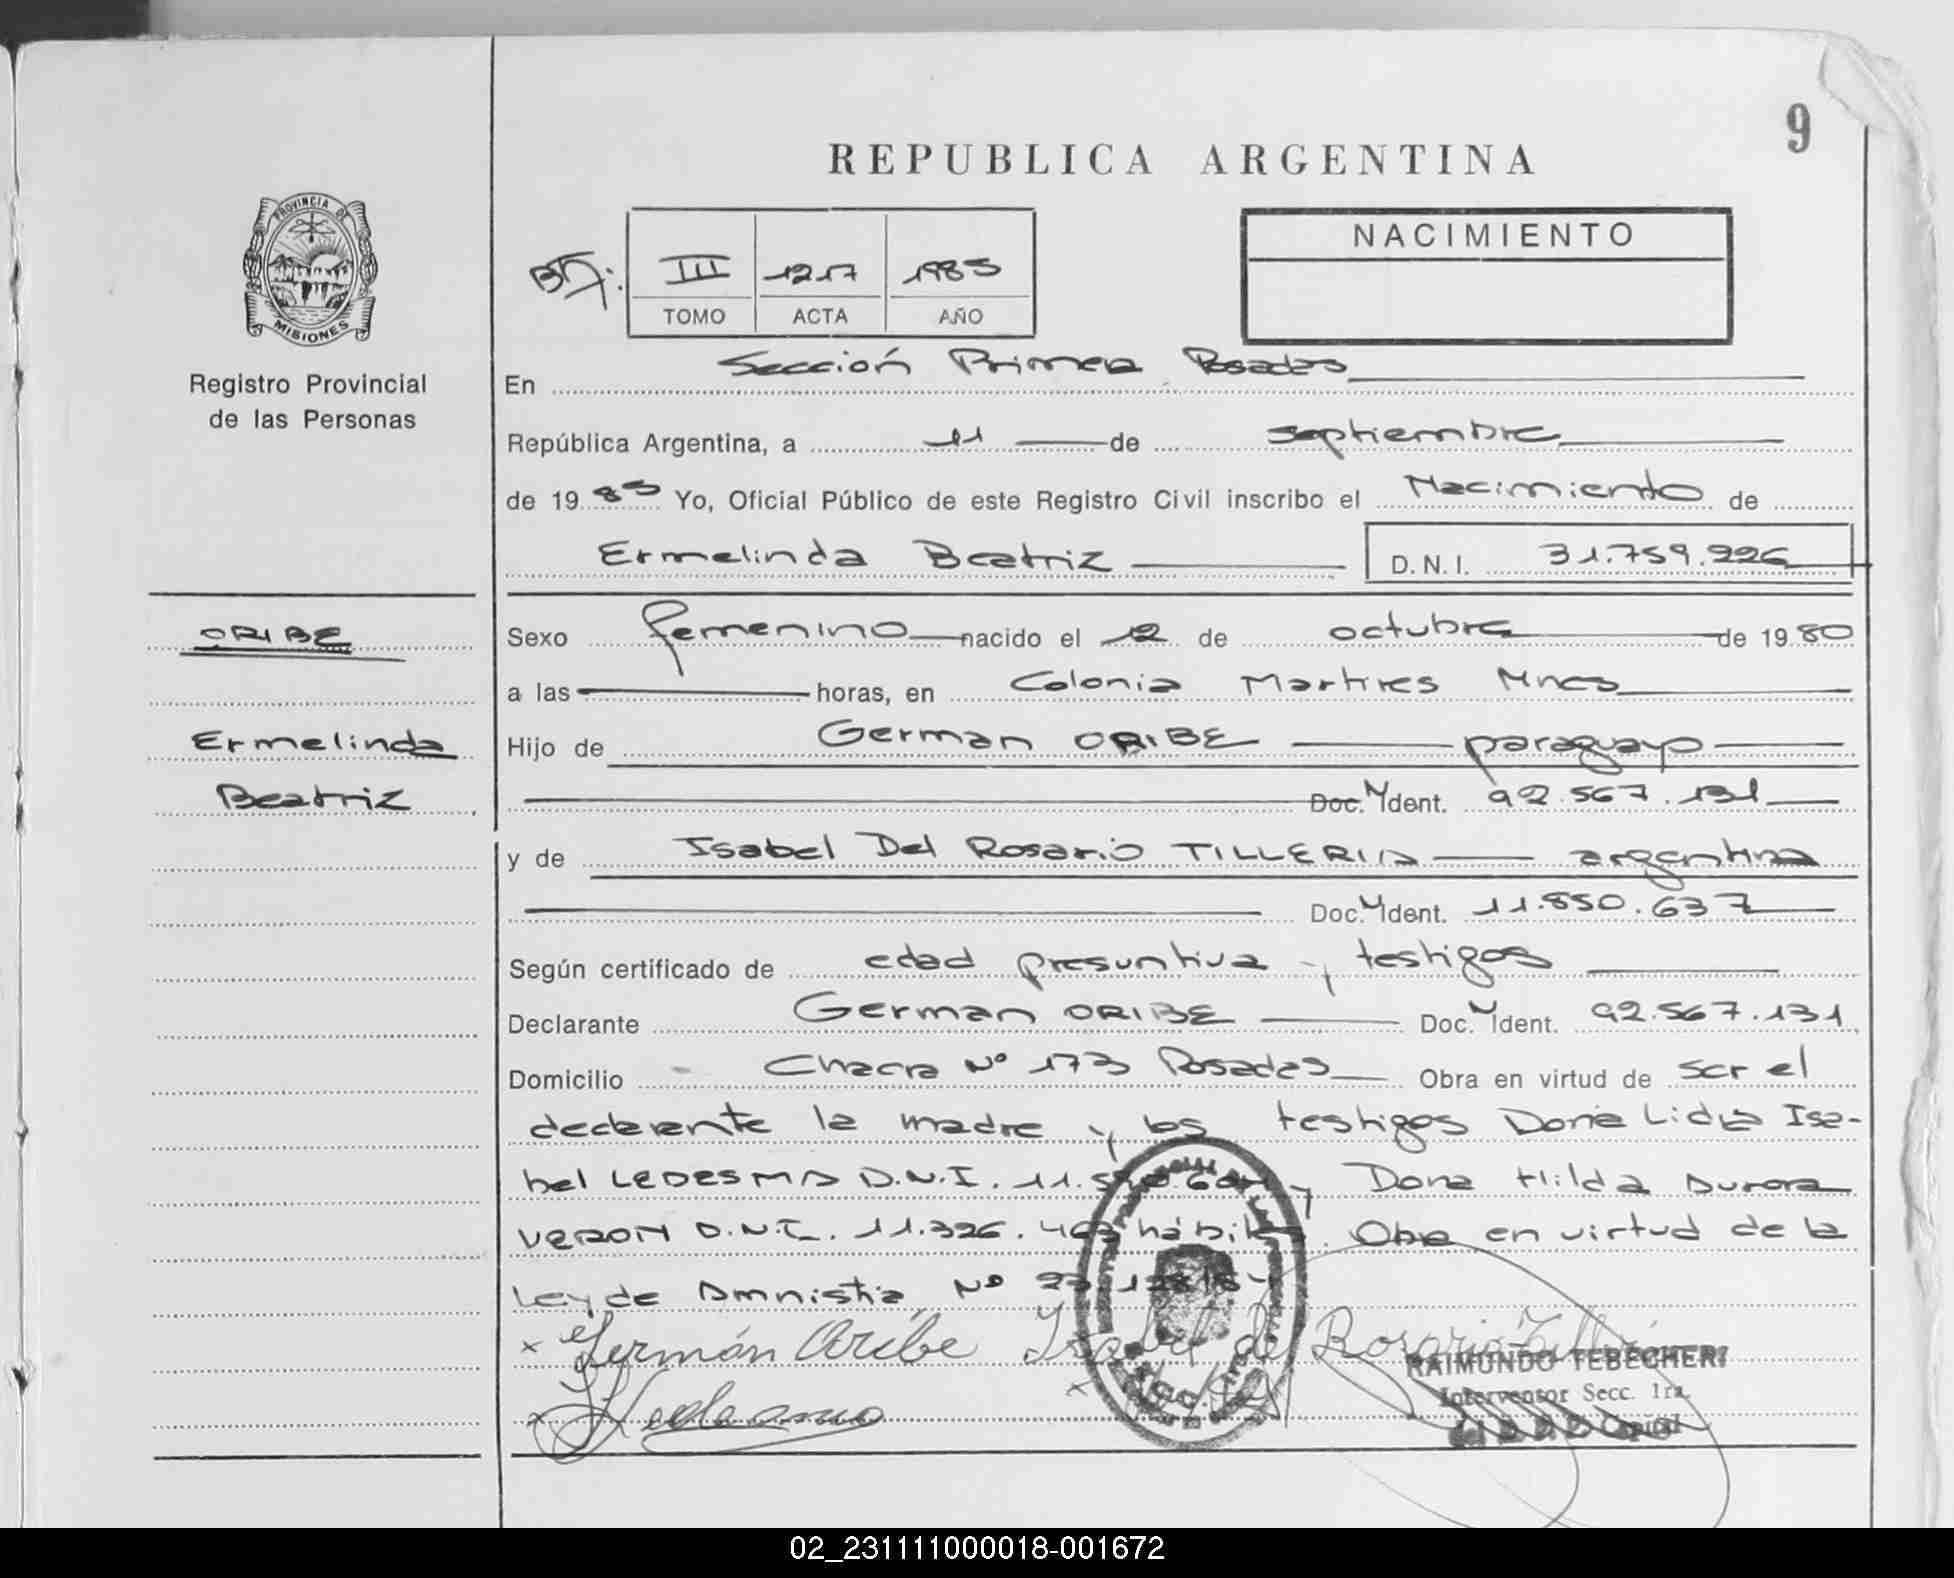 9
REPUBLICA ARGENTINA
PROVINCIA DE
MISIONES
Registro Provincial
de las Personas
III 1217 1985
TOMO ACTA AÑO
NACIMIENTO
En Sección Primera Posadas
República Argentina, a 11 de septiembre
de 1985 Yo, Oficial Público de este Registro Civil inscribo el Nacimiento de
Ermelinda Beatriz D.N.I. 31.759.226
ORIBE
Sexo femenino nacido el 12 de octubre de 1980
a las horas, en Colonia Martires Mnes
Ermelinda
Hijo de German ORIBE paraguayo
Beatriz
Doc. Ident. 92.567.131
y de Isabel Del Rosario TILLERIA argentina
Doc. Ident. 11.850.637
Según certificado de edad presuntiva y testigos
Declarante German ORIBE Doc. Ident. 92.567.131
Domicilio Chacra Nº 173 Posadas Obra en virtud de ser el
declarante la madre y los testigos Doña Lidia Isa-
bel LEDESMA D.N.I. y Doña Hilda Aurora
VERON D.N.I. 11.326.463 hábiles. Obra en virtud de la
Ley de Amnistia Nº
x Germán Oribe Isabel del Rosario
RAIMUNDO TEBECHERI
Interventor Secc. 1ra.
Capital
02_231111000018-001672